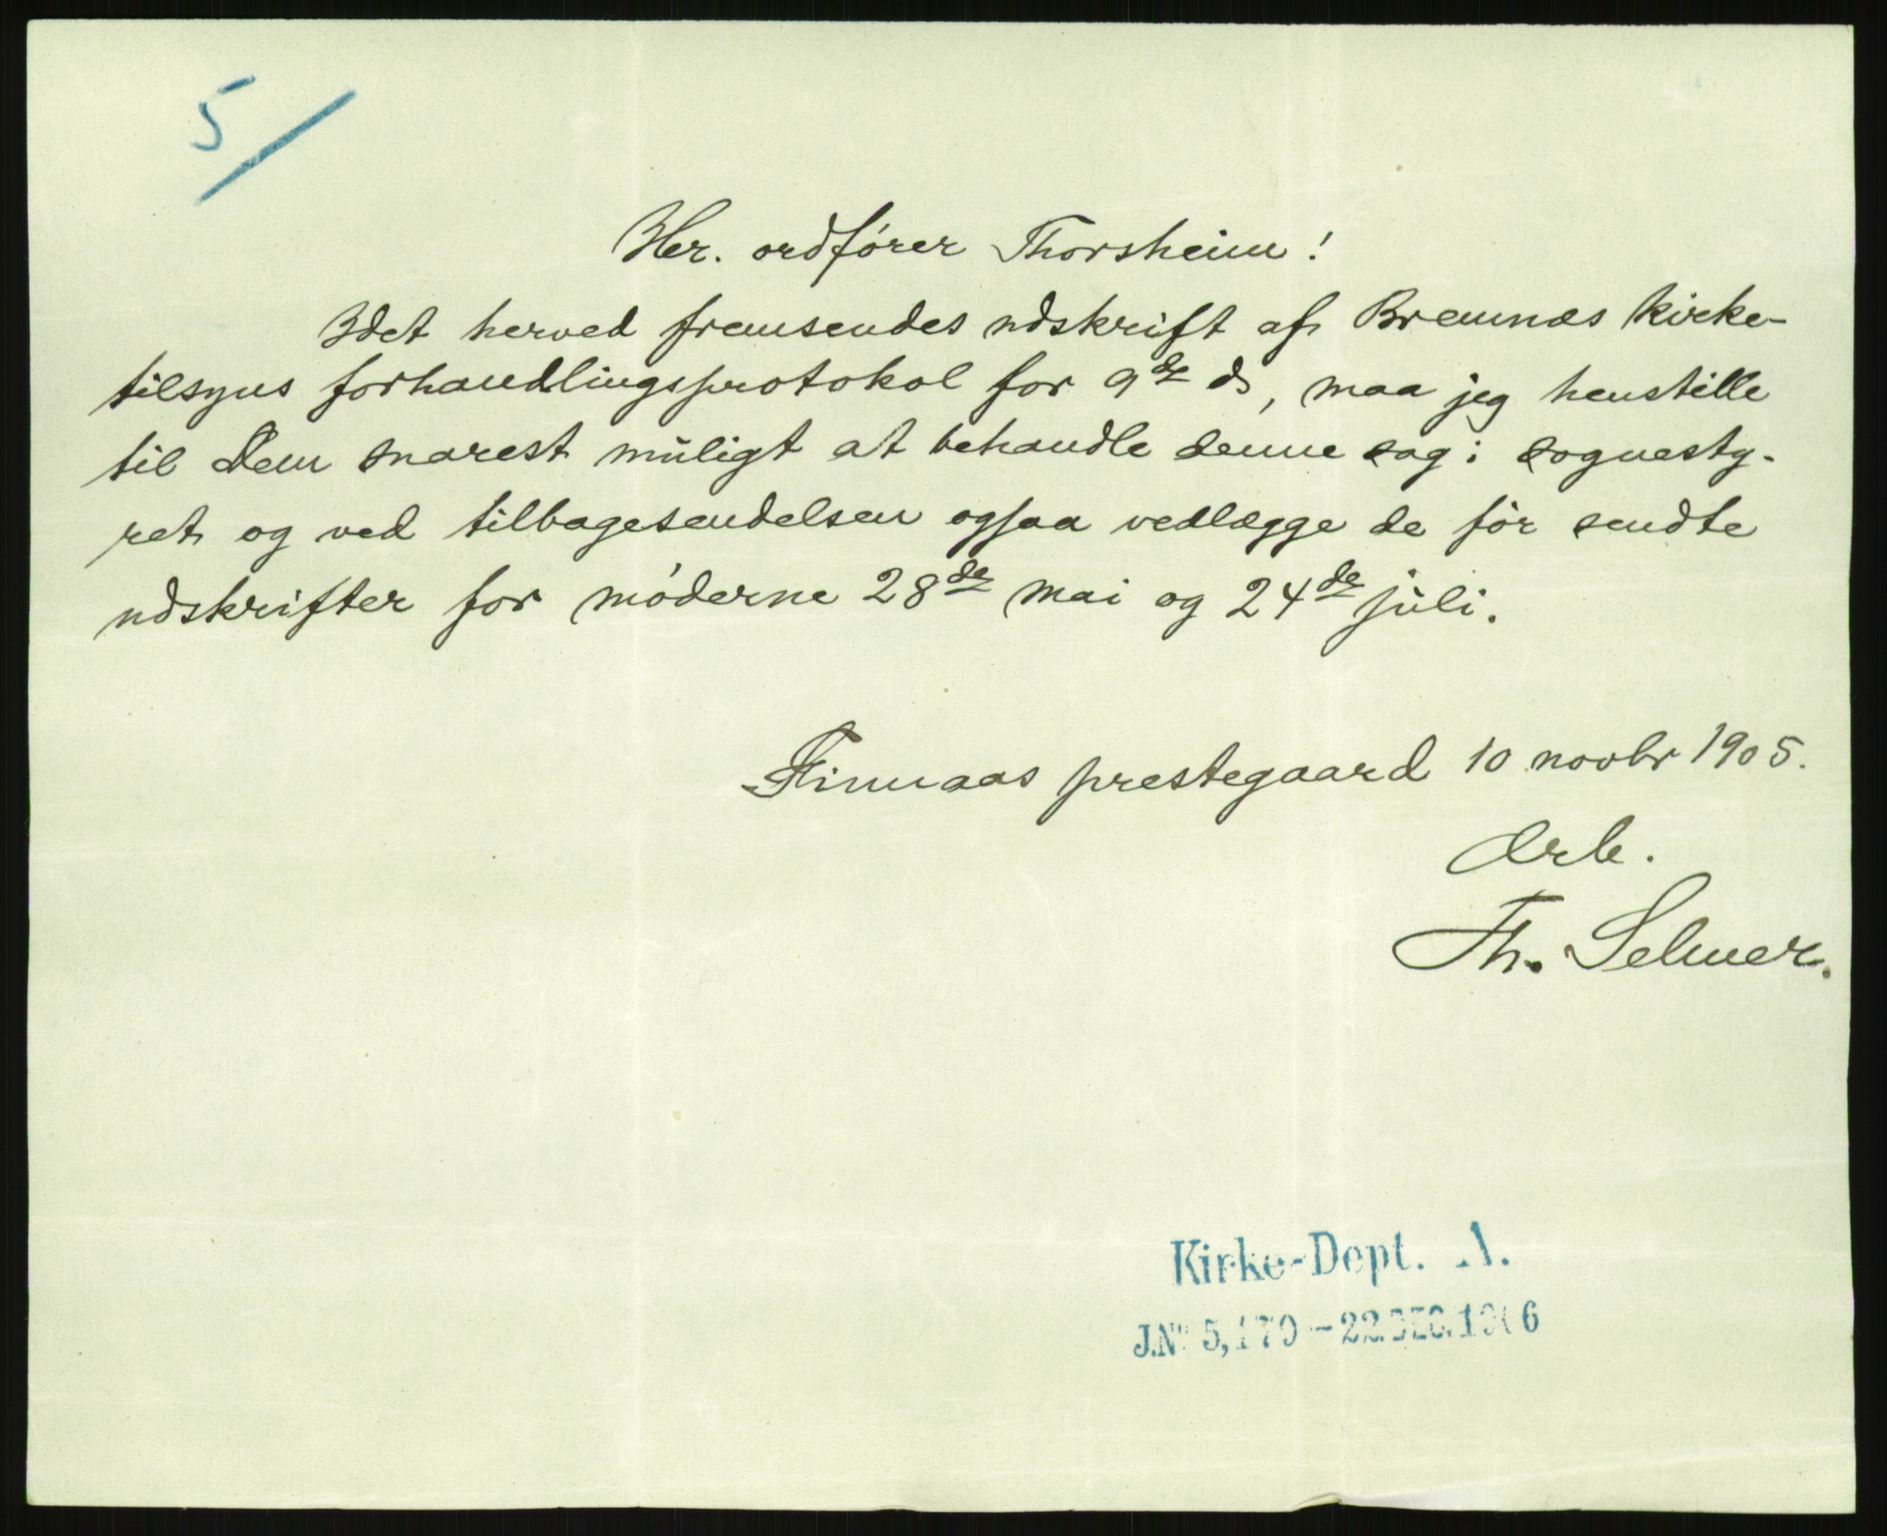 5/
Hr. ordfører Thorsheim!
Idet herved fremsendes udskrift af Bremnæs kirke-
tilsyns forhandlingsprotokol for 9de ds, maa jeg henstille
til Dem snarest muligt at behandle denne sag i sognesty-
ret og ved tilbagesendelsen ogsaa vedlægge de før sendte
udskrifter for møderne 28de mai og 24de juli.
Finnaas prestegaard 10 novbr 1905.
Ærb.
Th. Selmer.
Kirke-Dept. A.
J.No 5,179 - 22.DEC.1906